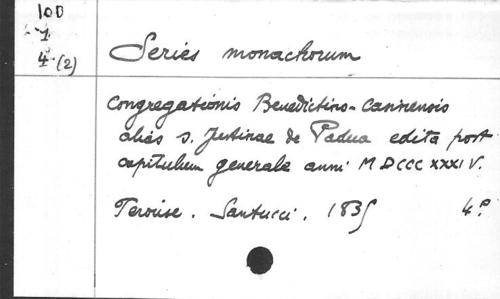 100
7
4 (2)
Series monachorum
Congregationis Benedictino-Casinensis
alias S. Justinae de Padua edita post
capitulum generale anni MDCCCXXXIV.
Santucci. 1835 4º